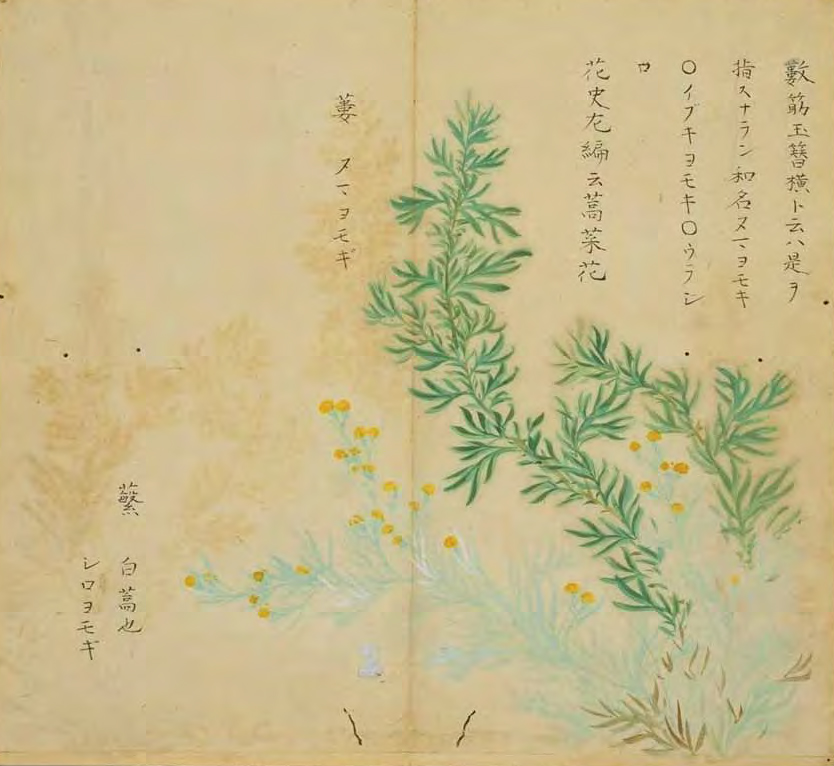 數筋玉簪橫ト云ハ是ヲ
指スナラン和名ヌマヨモキ
〇イブキヨモキ〇ウラシ
ロ
花史左編云蒿菜花
蔞 ヌマヨモギ
蘩 白蒿也
シロヨモギ